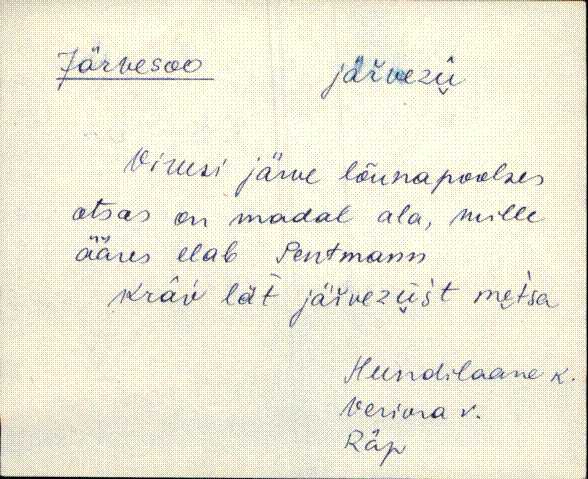 Järvesoo järvezü̬
Virusi järve lõunapoolses
otsas on madal ala, mille
ääres elab Pentmann
krav lät järvezü̬st metsa
Hundilaane k.
Veriora v.
Räp